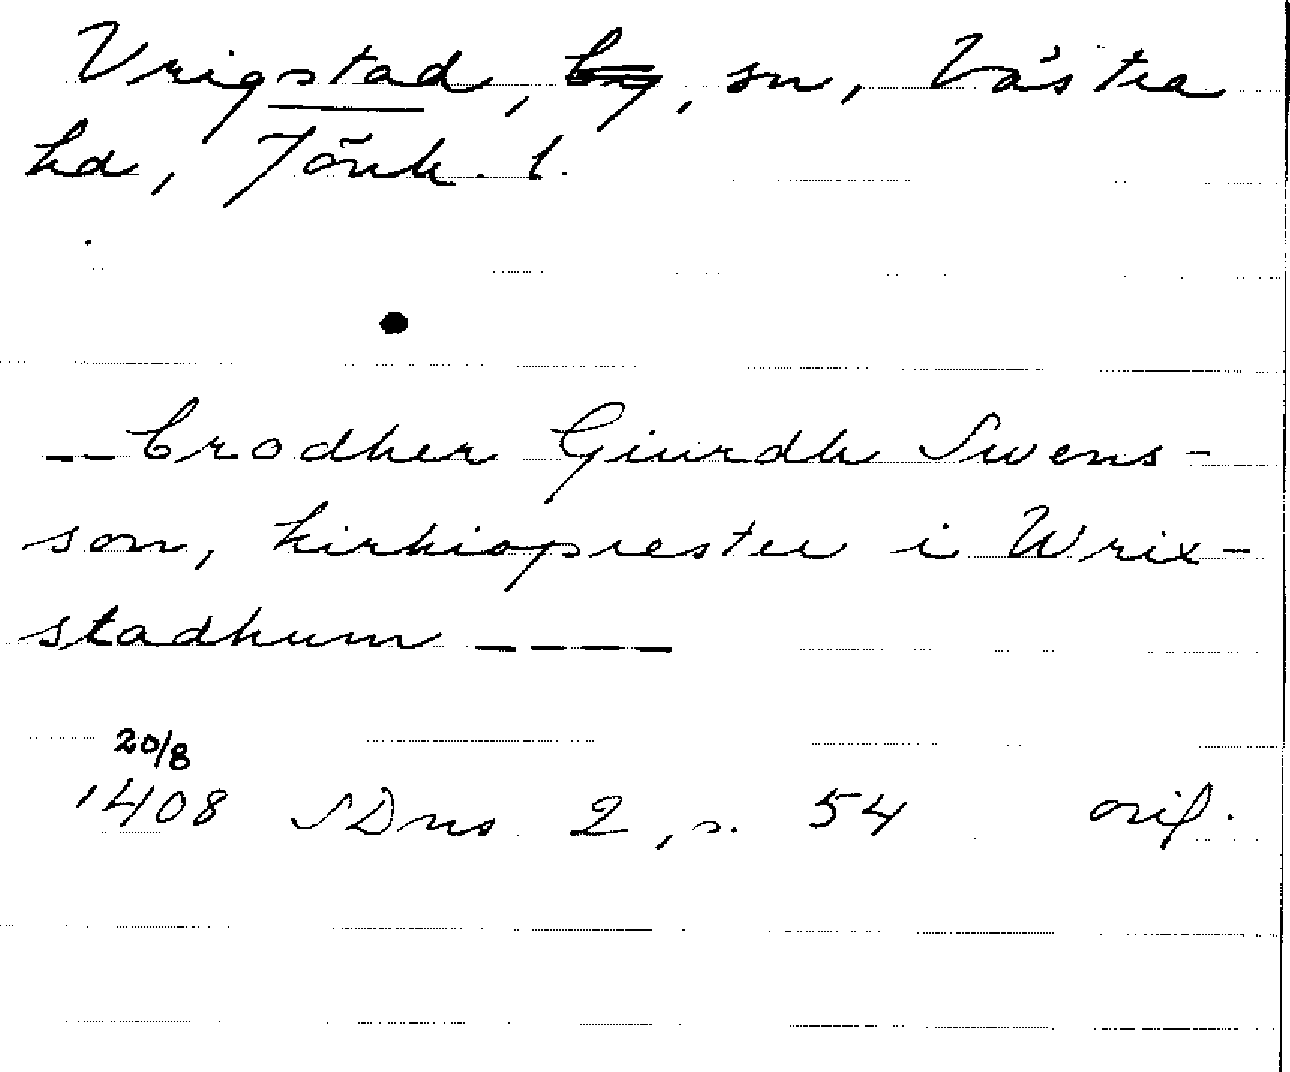 Vrigstad, by, sn, Västra
hd, Jönk. l.
-- brodher Giurdh Swens-
son, kirkioprester i Wrix-
stadhum ----
20/8
1408 SDns 2, s. 54 orig.